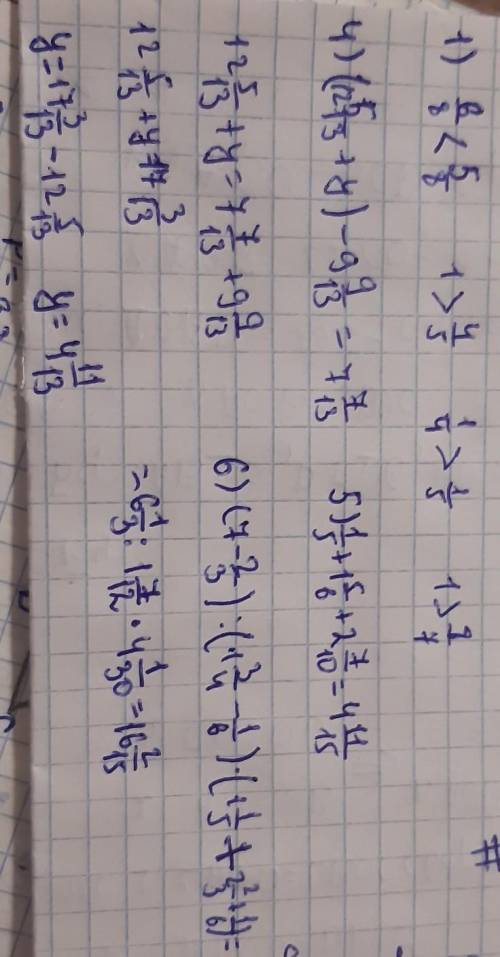 1) 2/8 < 5/8 1 > 4/5 1/4 > 1/5
4) (12 5/13 + y) - 9 9/13 = 7 7/13
12 5/13 + y = 7 7/13 + 9 9/13
12 5/13 + y = 17 3/13
y = 17 3/13 - 12 5/13 y = 4 11/13
5) 1/5 + 1 5/6 + 2 7/10 = 4 11/15
6) (7 - 2/3) : (1 3/4 - 1/6) · (1 1/5 + 2 2/3 + 1/6) =
= 6 1/3 : 1 7/12 · 4 1/30 = 16 2/15
#